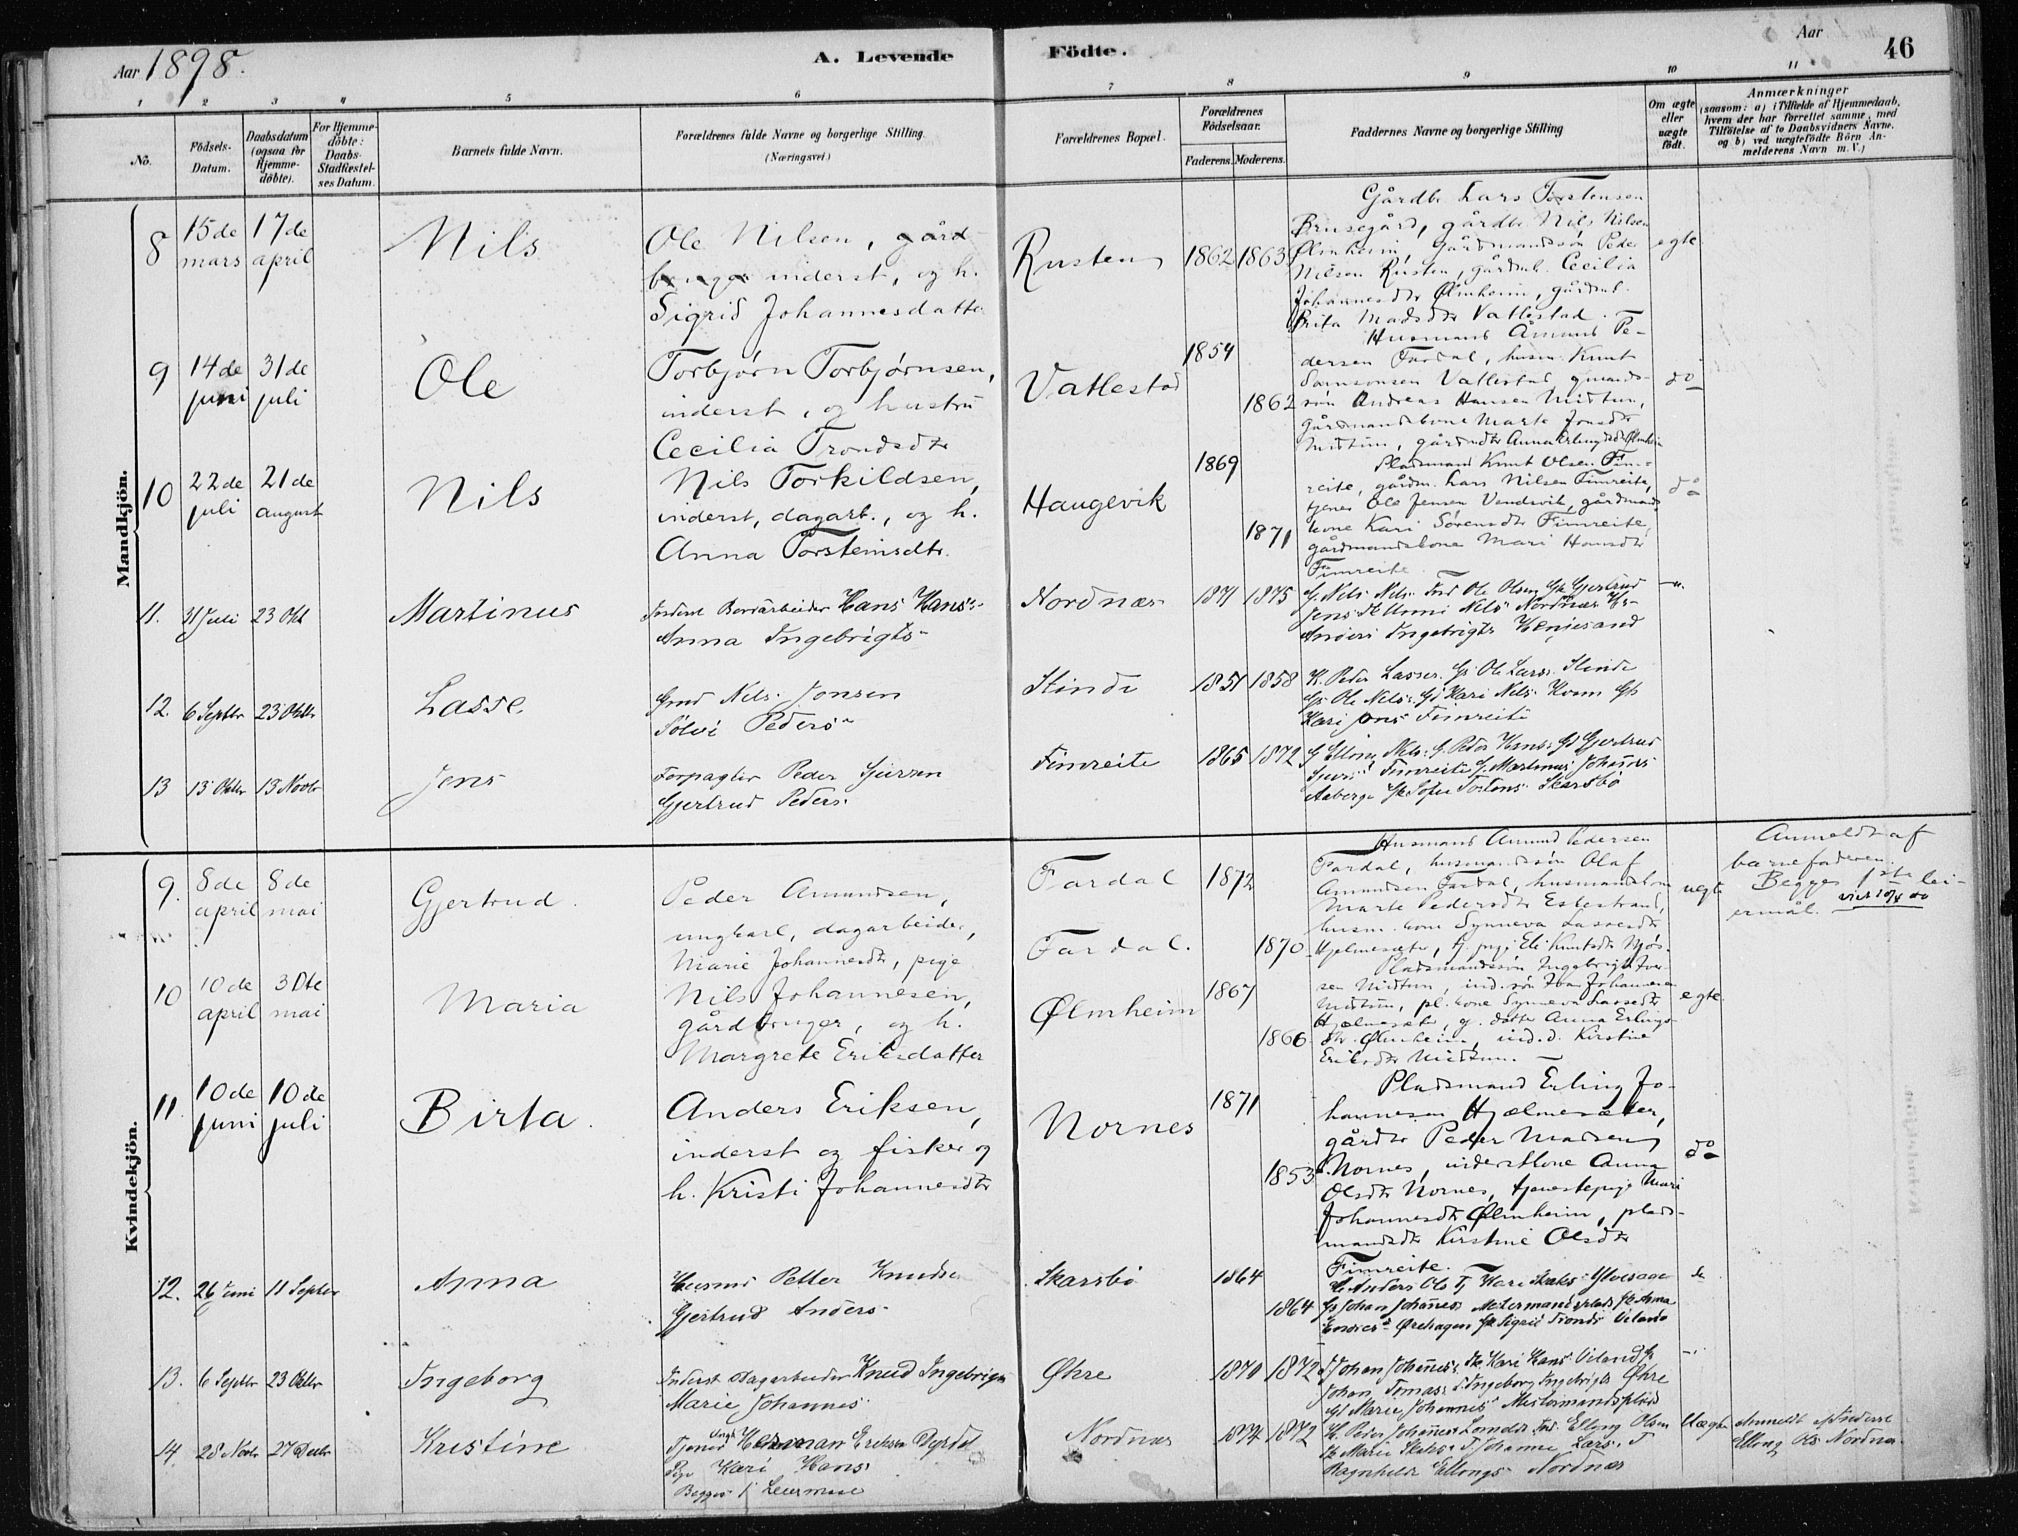 Aar 1898.
A. Levende
Födte.
Aar
46
1 2 3 4 5 6 7 8 9 10 11
No.
Födsels-Datum.
Daabsdatum (ogsaa for Hjemme-döbte).
For Hjemme-döbte: Daabs-Stadfæstel-ses Datum.
Barnets fulde Navn.
Forældrenes fulde Navne og borgerlige Stilling. (Næringsvei)
Forældrenes Bopæl.
Forældrenes Födselsaar.
Faderens. Moderens.
Faddernes Navne og borgerlige Stilling
Om ægte eller uægte födt.
Anmærkninger (saasom: a) i Tilfælde af Hjemmedaab, hvem der har forrettet samme, med Tilföielse af to Daabsvidners Navne, og b) ved uægtefödte Börn Anmelderens Navn m. V.)
Mandkjön.
8 15de mars 17de april
Nils
Ole Nilsen, gård-
bruger inderst, og h.
Sigrid Johannesdatter
Rusten 1862 1863
Gårdb. Lars Torstensen
Brusegård, gårdbr Nils Nilsen
Ølmheim, gårdmandssøn Peder
Nilsen Rusten, gårdmk. Cecilia
Johannesdtr Ølmheim, gårdmk.
Brita Madsdtr Vatlestad.
egte
9 14de juni 31de juli
Ole
Torbjørn Torbjørnsen,
inderst, og hustru
Cecilia Trondsdtr
Vatlestad 1854 1862
Husmand Åmund Pe-
dersen Fardal, husm. Knut
Samsonsen Vatlestad, gmands-
søn Andreas Hansen Midtun,
gårdmandskone Marte Jonsdtr
Midtun, gårdmdtr Anna Erlingsdtr Ølmheim
do
10 22de juli 21de august
Nils
Nils Torkildsen,
inderst, dagarb., og h.
Anna Torsteinsdtr.
Haugevik 1869 1871
Pladsmand Knut Olsen Fim-
reite, gårdm. Lars Nilsen Fimreite,
tjener Ole Jensen Vendevik, gårdmands-
kone Kari Sørensdtr Fimreite,
gårdmandskone Mari Hansdtr
Fimreite.
do
11. 31 Juli 23 Okt
Martinus
Inderst Bordarbeider Hans Hans:
Anna Ingebrigts
Nordnæs 1871 1875
G. Nils Nils. Ind Ole Olsen Gk Gjertrud
Jens Nordnæs
Anders Ingebrigts
12. 6 Septbr 23 Oktbr
Lasse.
Gmd Nils Jonsen
Sølvi Peders
Stinde 1851 1858
K. Peder Lasses. Gs Ole Lars. Stinde
Gs Ole Nils. Gd Kari Nils. Kvam Gk
Kari Jons Fimreite
13 13 Oktbr 13 Novbr
Jens
Forpagter Peder Sjursen
Gjertrud Peders.
Fimreite 1865 1872
G Elling Nils. G. Peder Hans. Gd Gjertrud
Sjurs Fimreite G. Martinus Johannes
Aaberge Gk Sofie Tostens Skarsbø
Kvindekjön.
9. 8de april 8de mai
Gjertrud.
Peder Amundsen,
ungkarl, dagarbeider,
Marie Johannesdtr, pige
Fardal 1872
Fardal. 1870
Husmand Amund Pedersen
Fardal, husmandssøn Olaf
Amundsen Fardal, husmandskone
Marte Pedersdtr Eslestrand,
husm. kone Synneva Lassesdtr
Hjelmesæter, tj. pige Eli Knutsdtr
uegte
Anmeldt af
barnefaderen.
Begges 1ste lei-
ermål.
10 10de april 30te mai
Maria
Nils Johannesen,
gårdbruger, og h.
Margrete Eriksdatter
Ølmheim 1867 1866
Pladsmandssøn Ingebrigt Iver-
sen Midtun, ind. søn Ivar Johannesen
Midtun, pl. kone Synneva Lassesdtr
Hjælmesæter, g. datter Anna Erlings-
dtr. Ølmheim, ind. d. Kirstine
Eriksdtr Midtun.
egte.
11. 10de juni 10de juli
Birta.
Anders Eriksen,
inderst og fisker og
h. Kristi Johannesdtr
Nornes 1871 1853
Pladsmand Erling Jo-
hannesen Hjælmesæter,
gårdbr Peder Madsen
Nornes, inderstkone Anna
Olsdtr Nornes, tjenestepige Mari
Johannesdtr Ølmheim, plads-
mandsdtr Kirstine Olsdtr
Fimreite.
do
12. 26 Juni 11 Septbr
Anna
Husmd Petter Knuds
Gjertrud Anders
Skarsbø 1864 1864
Anders Ols Tj Kari
Gs Johan Johannes Mestermandsplads Gk Anna
Ørehagen Gk Sigrid Tronds Viland
do
13. 6 Septbr 23 Oktbr
Ingeborg
Inderst Dagarbeider Knud Ingebrigts
Marie Johannes.
Øhre 1870 1872
Johan Johannes. Kari Hans Viland
Johan Tomas. Ingeborg Ingebrigts Øhre
Gd Marie Johannes Mestermandsplads
14. 28 Novbr 27 Decbr
Kristine
Tjener Ungk Herman Eriksen Dyrdal
Pige Kari Hans
Begges 1 Leiermaal
Nordnæs 1874 1872
H. Peder Johannes Ind. Elling Olsen
Marie Johanne Lars. T
Ragnhild Ellings Nordnæs
Uægte
Anmeldt af Inderst
Elling Ols. Nordnæs.